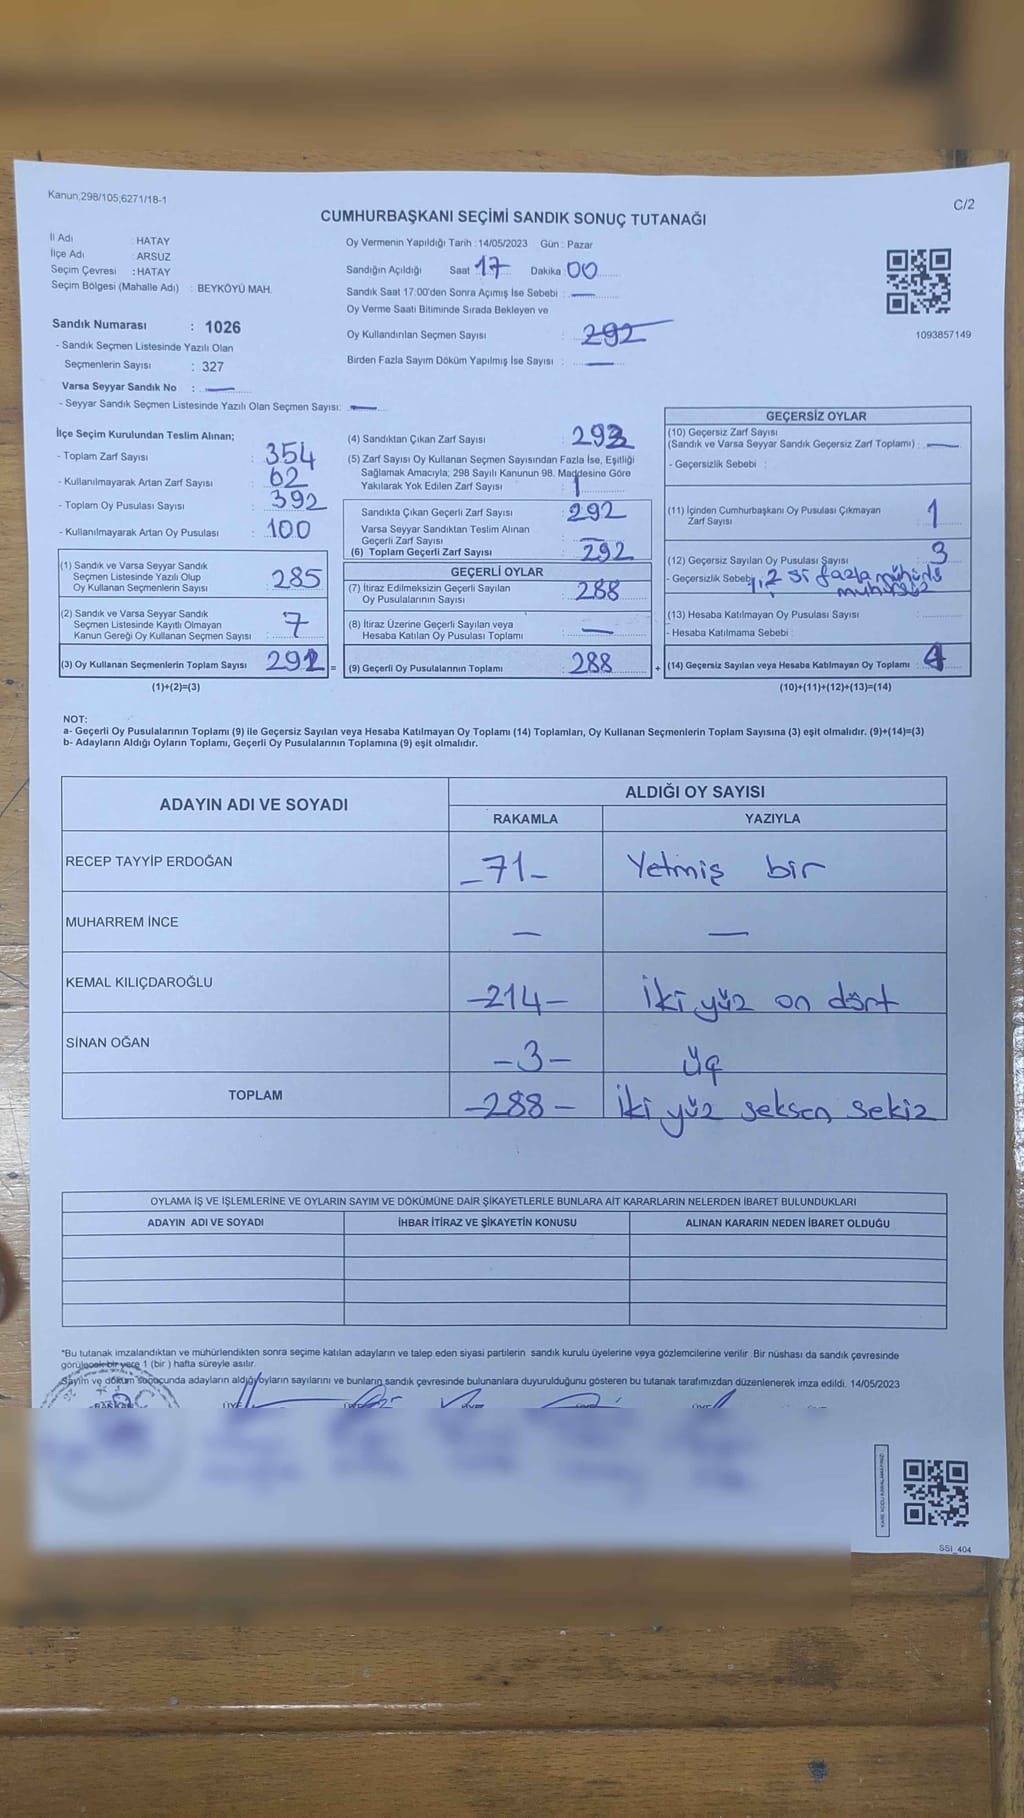 Kanun,298/105;6271/18-1
C/2
CUMHURBAŞKANI SEÇİMİ SANDIK SONUÇ TUTANAĞI
İl Adı : HATAY
İlçe Adı : ARSUZ
Seçim Çevresi : HATAY
Seçim Bölgesi (Mahalle Adı) : BEYKÖYÜ MAH.
Sandık Numarası : 1026
- Sandık Seçmen Listesinde Yazılı Olan
Seçmenlerin Sayısı : 327
Varsa Seyyar Sandık No : —
- Seyyar Sandık Seçmen Listesinde Yazılı Olan Seçmen Sayısı: —
Oy Vermenin Yapıldığı Tarih : 14/05/2023 Gün : Pazar
Sandığın Açıldığı Saat 17 Dakika 00
Sandık Saat 17:00'den Sonra Açımış İse Sebebi : —
Oy Verme Saati Bitiminde Sırada Bekleyen ve
Oy Kullandırılan Seçmen Sayısı : 292
Birden Fazla Sayım Döküm Yapılmış İse Sayısı : —
1093857149
İlçe Seçim Kurulundan Teslim Alınan;
- Toplam Zarf Sayısı : 354
- Kullanılmayarak Artan Zarf Sayısı : 62
- Toplam Oy Pusulası Sayısı : 392
- Kullanılmayarak Artan Oy Pusulası : 100
(1) Sandık ve Varsa Seyyar Sandık
Seçmen Listesinde Yazılı Olup
Oy Kullanan Seçmenlerin Sayısı : 285
(2) Sandık ve Varsa Seyyar Sandık
Seçmen Listesinde Kayıtlı Olmayan
Kanun Gereği Oy Kullanan Seçmen Sayısı : 7
(3) Oy Kullanan Seçmenlerin Toplam Sayısı 292 =
(1)+(2)=(3)
(4) Sandıktan Çıkan Zarf Sayısı : 293
(5) Zarf Sayısı Oy Kullanan Seçmen Sayısından Fazla İse, Eşitliği
Sağlamak Amacıyla; 298 Sayılı Kanunun 98. Maddesine Göre
Yakılarak Yok Edilen Zarf Sayısı : 1
Sandıkta Çıkan Geçerli Zarf Sayısı : 292
Varsa Seyyar Sandıktan Teslim Alınan
Geçerli Zarf Sayısı : —
(6) Toplam Geçerli Zarf Sayısı : 292
GEÇERLİ OYLAR
(7) İtiraz Edilmeksizin Geçerli Sayılan
Oy Pusulalarının Sayısı : 288
(8) İtiraz Üzerine Geçerli Sayılan veya
Hesaba Katılan Oy Pusulası Toplamı : —
(9) Geçerli Oy Pusulalarının Toplamı : 288 +
GEÇERSİZ OYLAR
(10) Geçersiz Zarf Sayısı
(Sandık ve Varsa Seyyar Sandık Geçersiz Zarf Toplamı) : —
- Geçersizlik Sebebi :
(11) İçinden Cumhurbaşkanı Oy Pusulası Çıkmayan
Zarf Sayısı : 1
(12) Geçersiz Sayılan Oy Pusulası Sayısı : 3
- Geçersizlik Sebebi 2 si fazla mühürlü
mühürsüz
(13) Hesaba Katılmayan Oy Pusulası Sayısı :
- Hesaba Katılmama Sebebi :
(14) Geçersiz Sayılan veya Hesaba Katılmayan Oy Toplamı : 4
(10)+(11)+(12)+(13)=(14)
NOT:
a- Geçerli Oy Pusulalarının Toplamı (9) ile Geçersiz Sayılan veya Hesaba Katılmayan Oy Toplamı (14) Toplamları, Oy Kullanan Seçmenlerin Toplam Sayısına (3) eşit olmalıdır. (9)+(14)=(3)
b- Adayların Aldığı Oyların Toplamı, Geçerli Oy Pusulalarının Toplamına (9) eşit olmalıdır.
ADAYIN ADI VE SOYADI
ALDIĞI OY SAYISI
RAKAMLA YAZIYLA
RECEP TAYYİP ERDOĞAN -71- Yetmiş bir
MUHARREM İNCE — —
KEMAL KILIÇDAROĞLU -214- İki yüz on dört
SİNAN OĞAN -3- üç
TOPLAM -288- İki yüz seksen sekiz
OYLAMA İŞ VE İŞLEMLERİNE VE OYLARIN SAYIM VE DÖKÜMÜNE DAİR ŞİKAYETLERLE BUNLARA AİT KARARLARIN NELERDEN İBARET BULUNDUKLARI
ADAYIN ADI VE SOYADI İHBAR İTİRAZ VE ŞİKAYETİN KONUSU ALINAN KARARIN NEDEN İBARET OLDUĞU
*Bu tutanak imzalandıktan ve mühürlendikten sonra seçime katılan adayların ve talep eden siyasi partilerin sandık kurulu üyelerine veya gözlemcilerine verilir .Bir nüshası da sandık çevresinde
görülecek bir yere 1 (bir ) hafta süreyle asılır.
Sayım ve döküm sonucunda adayların aldığı oyların sayılarını ve bunların sandık çevresinde bulunanlara duyurulduğunu gösteren bu tutanak tarafımızdan düzenlenerek imza edildi. 14/05/2023
SSI_404